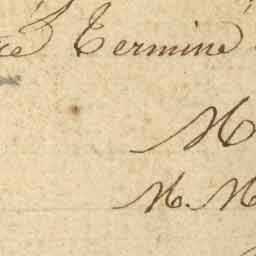 Termine
M
M. M